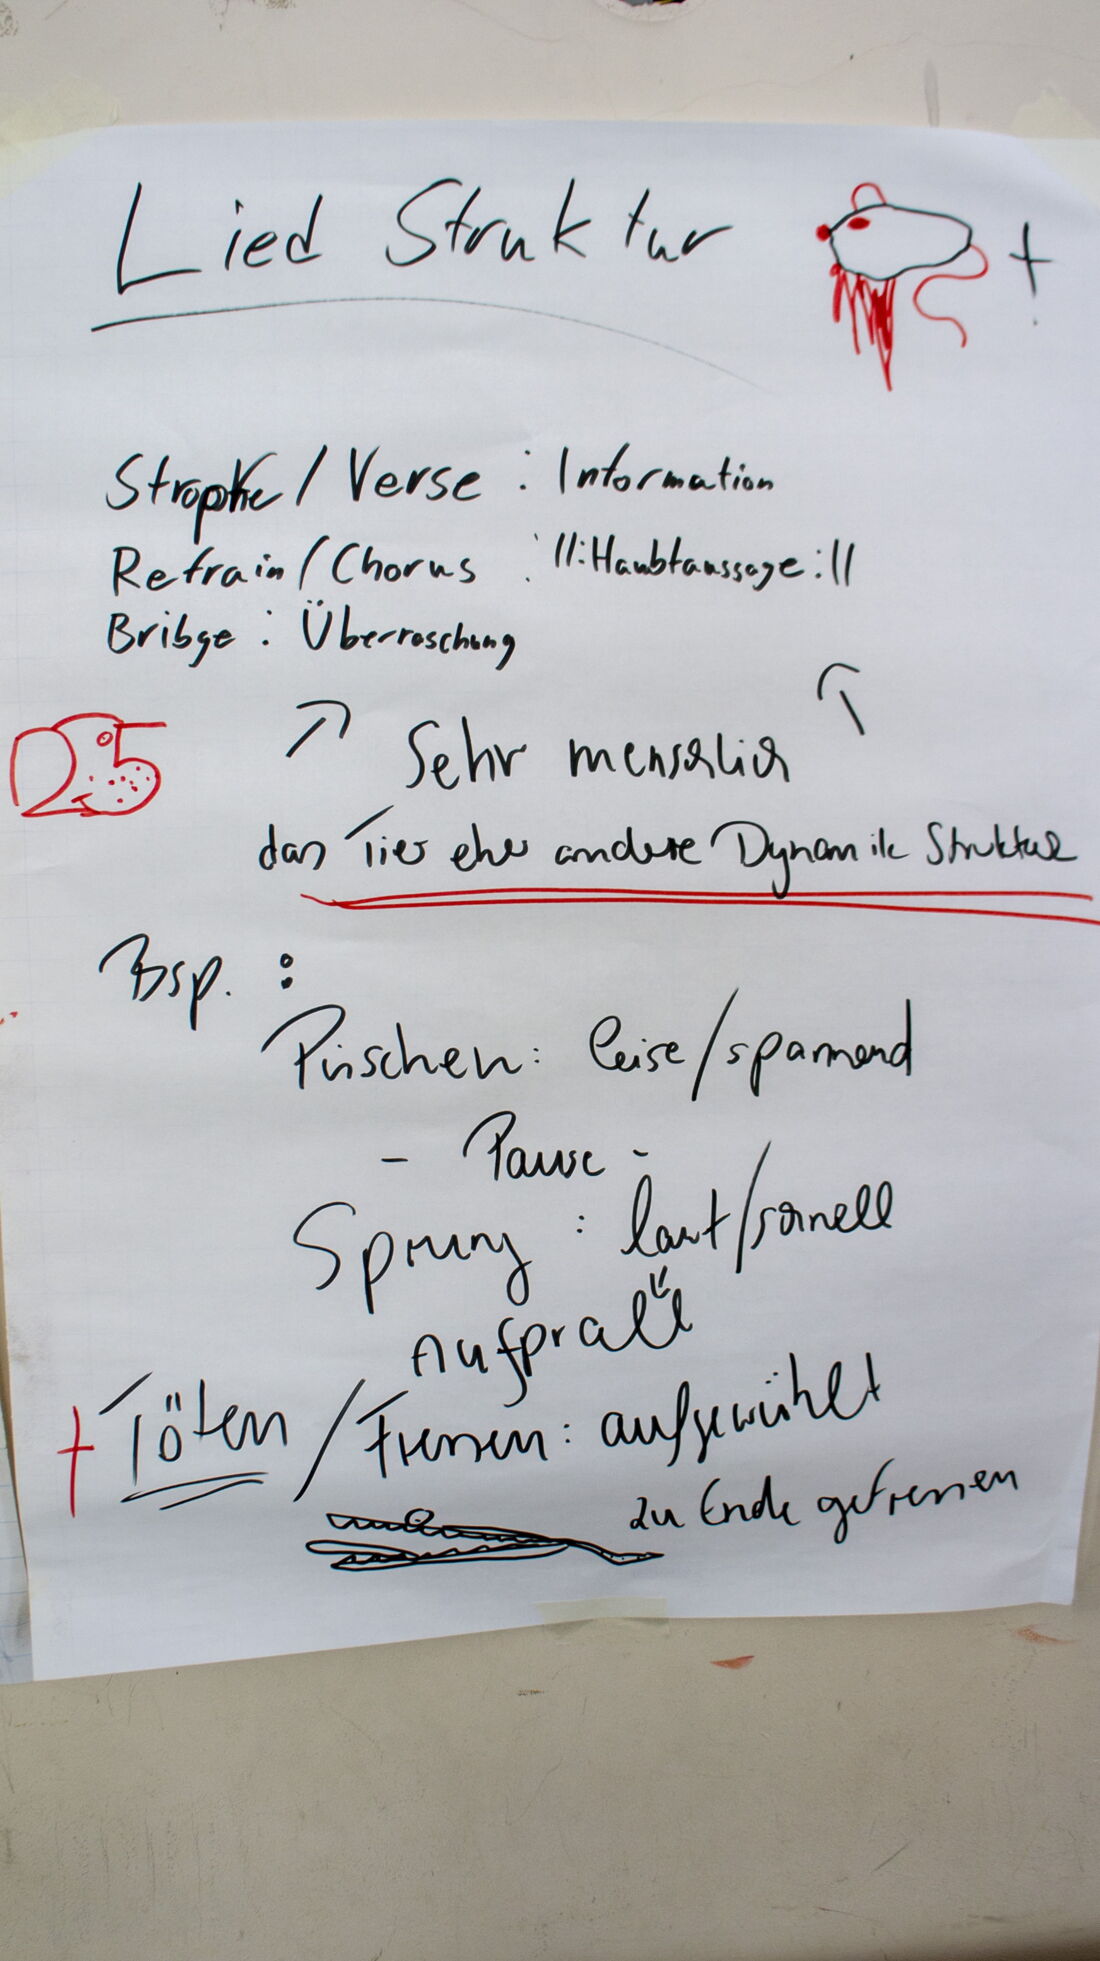 Lied Struktur
Strophe / Verse : Information
Refrain / Chorus : ||:Haubtaussage:||
Bribge : Überraschung
Sehr menschlich
25
das Tier eher andere Dynamik Struktur
Bsp. :
Pirschen: leise/spannend
- Pause -
Sprung : laut/schnell
Aufprall
Töten / Fressen: aufgewühlt
zu Ende gefressen